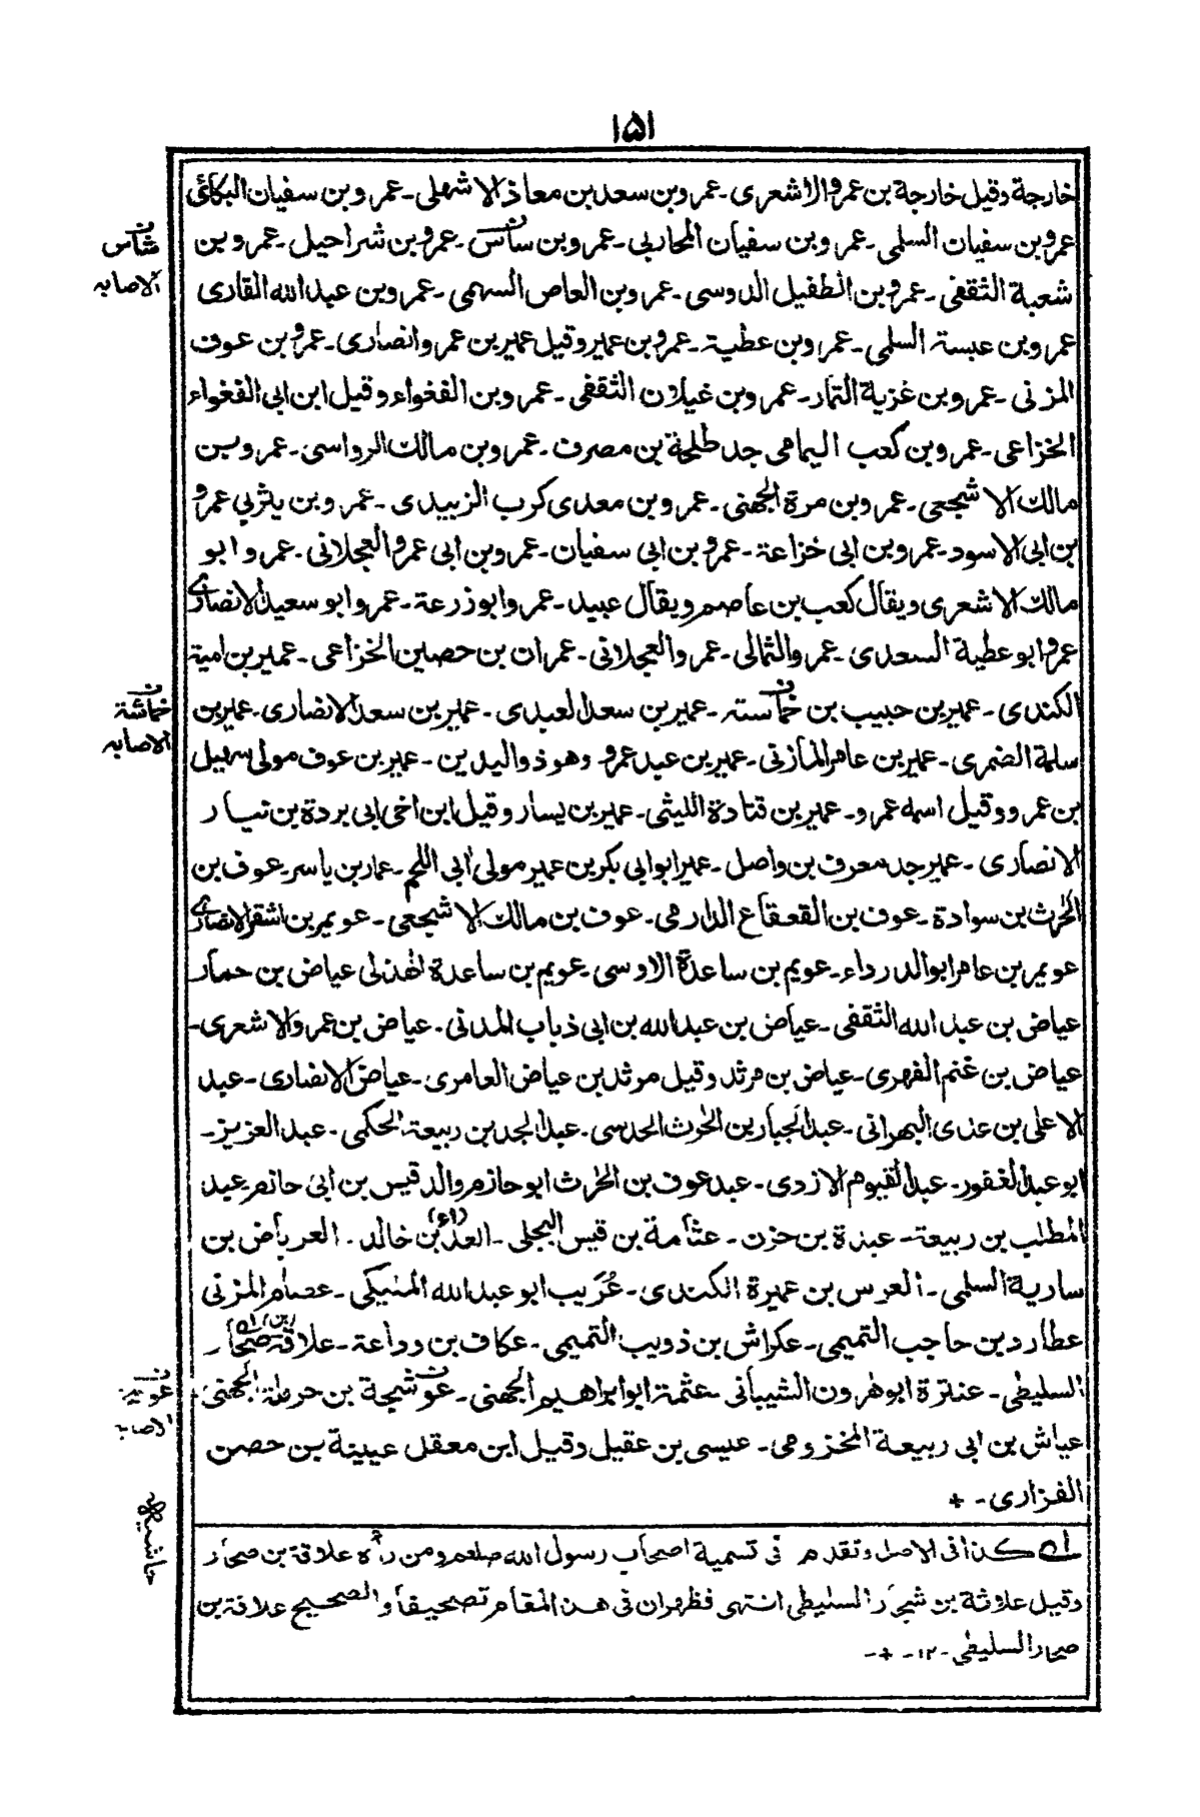 ١٥١
خارجة وقيل خارجة بن عمرو الاشعرى ـ عمرو بن سعد بن معاذ الاشهلى ـ عمرو بن سفيان البكائى
عمرو بن سفيان السلمى ـ عمرو بن سفيان المحاربى ـ عمرو بن سأس ـ عمرو بن شراحيل ـ عمرو بن
شأس
الاصابه
شعبة الثقفى ـ عمرو بن الطفيل الدوسى ـ عمرو بن العاص السهمى ـ عمرو بن عبد الله القارى
عمرو بن عبسة السلمى ـ عمرو بن عطية ـ عمرو بن عمير وقيل عمير بن عمرو انصارى ـ عمرو بن عوف
المزنى ـ عمرو بن غزية التمار ـ عمرو بن غيلان الثقفى ـ عمرو بن الفغواء وقيل ابن ابى الفغواء
الخزاعى ـ عمرو بن كعب اليمامى جد طلحة بن مصرف ـ عمرو بن مالك الرواسى ـ عمرو بن
مالك الاشجعى ـ عمرو بن مرة الجهنى ـ عمرو بن معدى كرب الزبيدى ـ عمرو بن يثربى عمرو
بن ابى الاسود ـ عمرو بن ابى خزاعة ـ عمرو بن ابى سفيان ـ عمرو بن ابى عمرو العجلانى ـ عمرو ابو
مالك الاشعرى ويقال كعب بن عاصم ويقال عبيد ـ عمرو ابو زرعة ـ عمرو ابو سعيد الانصارى
عمرو ابو عطية السعدى ـ عمرو الثمالى ـ عمرو العجلانى ـ عمران بن حصين الخزاعى ـ عمير بن امية
الكندى ـ عمير بن حبيب بن خماسته ـ عمير بن سعد العبدى ـ عمير بن سعد الانصارى ـ عمير بن
خماشة
الاصابه
سلمة الضمرى ـ عمير بن عامر المازنى ـ عمير بن عبد عمرو وهو ذو اليدين ـ عمير بن عوف مولى سهيل
بن عمرو وقيل اسمه عمرو ـ عمير بن قتادة الليثى ـ عمير بن يسار وقيل ابن اخى ابى بردة بن نيار
الانصارى ـ عمير جد معرف بن واصل ـ عمير ابو ابى بكر بن عمير مولى ابى اللحم ـ عمار بن ياسر ـ عوف بن
الحرث بن سوادة ـ عوف بن القعقاع الدارمى ـ عوف بن مالك الاشجعى ـ عويمر بن اشقر الانصارى
عويمر بن عامر ابو الدرداء ـ عويم بن ساعدة الاوسى ـ عويم بن ساعدة الهذلى عياض بن حمار
عياض بن عبد الله الثقفى ـ عياض بن عبد الله بن ابى ذباب المدنى ـ عياض بن عمرو الاشعرى ـ
عياض بن غنم الفهرى ـ عياض بن مرثد وقيل مرثد بن عياض العامرى ـ عياض الانصارى ـ عبد
الاعلى بن عدى البهرانى ـ عبد الجبار بن الحرث الحدسى ـ عبد الجد بن ربيعة الحكمى ـ عبد العزيز ـ
ابو عبد الغفور ـ عبد القيوم الازدى ـ عبد عوف بن الحرث ابو حازم والد قيس بن ابى حازم عبد
المطلب بن ربيعة ـ عبدة بن حزن ـ عثامة بن قيس البجلى ـ العداء بن خالد ـ العرباض بن
سارية السلمى ـ العرس بن عميرة الكندى ـ عُرَيب ابو عبد الله المليكى ـ عصام المزنى
عطارد بن حاجب التميمى ـ عكراش بن ذويب التميمى ـ عكاف بن وداعة ـ علاقة (بن) صحار
السليطى ـ عنترة ابو هرون الشيبانى ـ عثمة ابو ابراهيم الجهنى ـ عوشجة بن حرملة الجهنى ـ
الاصابه
عياش بن ابى ربيعة المخزومى ـ عيسى بن عقيل وقيل ابن معقل عيينة بن حصن
الفزارى ـ +
حاشيه
كذا فى الاصل وتقدم فى تسمية اصحاب رسول الله صلعم ومن رأه علاقة بن صحار
وقيل علاثة بن شجار السليطى انتهى فظهر ان فى هذا المقام تصحيفاً والصحيح علاقة بن
صحار السليطى ـ ١٢ ـ + ـ